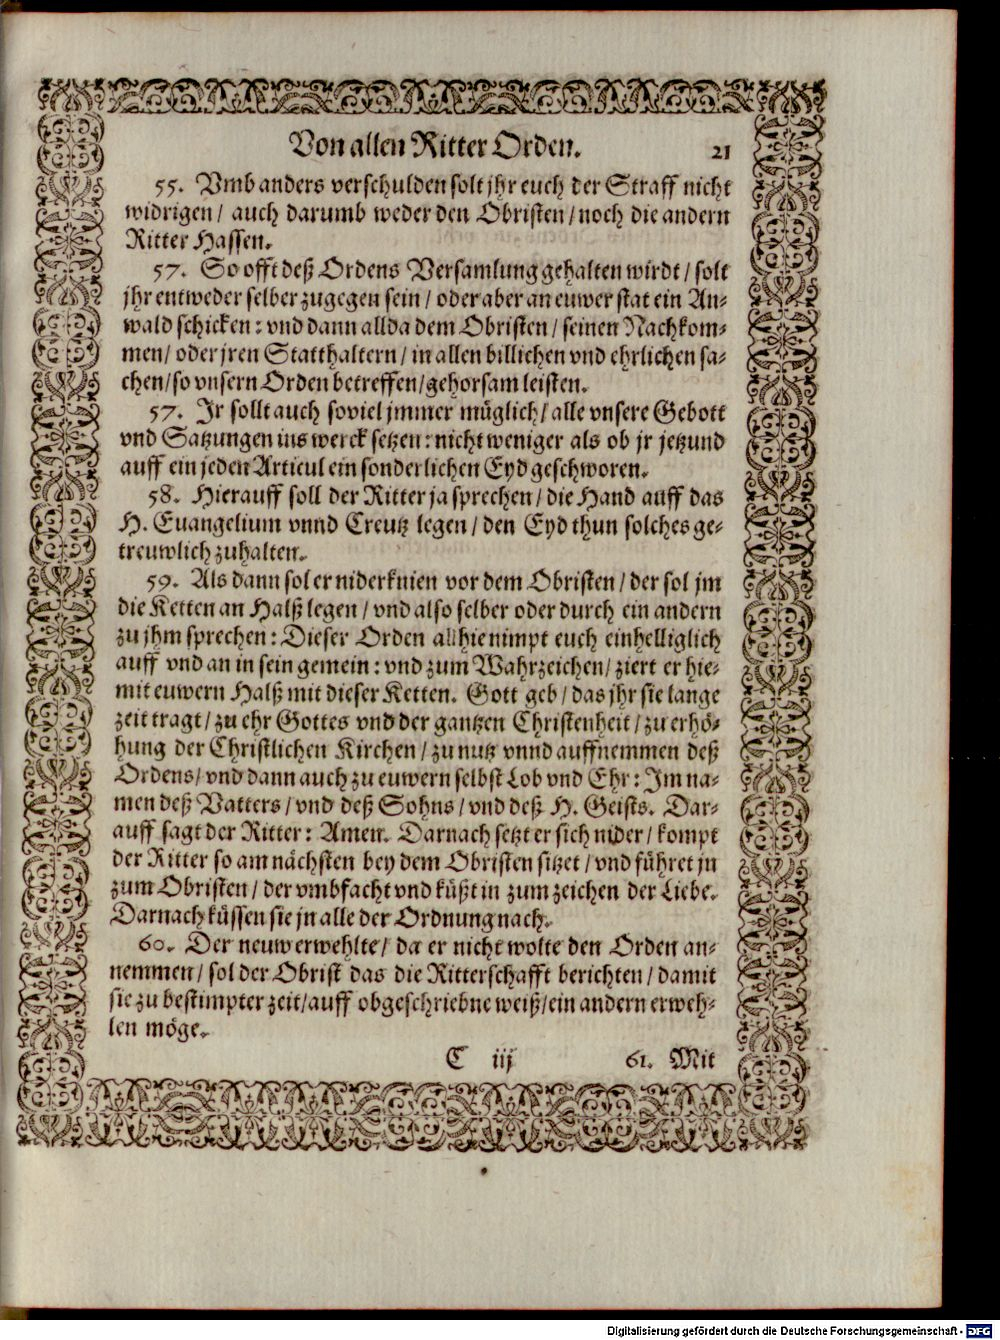 Von allen Ritter Orden. 21
55. Vmb anders verschulden solt jhr euch der Straff nicht
widrigen / auch darumb weder den Obristen / noch die andern
Ritter Hassen.
57. So offt deß Ordens Versamlung gehalten wirdt / solt
jhr entweder selber zugegen sein / oder aber an euwer stat ein An-
wald schicken: vnd dann allda dem Obristen / seinen Nachkom-
men / oder jren Statthaltern / in allen billichen vnd ehrlichen sa-
chen / so vnsern Orden betreffen / gehorsam leisten.
57. Jr sollt auch soviel jmmer müglich / alle vnsere Gebott
vnd Satzungen ins werck setzen: nicht weniger als ob jr jetzund
auff ein jeden Articul ein sonderlichen Eyd geschworen.
58. Hierauff soll der Ritter ja sprechen / die Hand auff das
H. Euangelium vnnd Creutz legen / den Eyd thun solches ge-
treuwlich zuhalten.
59. Als dann sol er niderknien vor dem Obristen / der sol jm
die Ketten an Halß legen / vnd also selber oder durch ein andern
zu jhm sprechen: Dieser Orden allhie nimpt euch einhelliglich
auff vnd an in sein gemein: vnd zum Wahrzeichen / ziert er hie-
mit euwern Halß mit dieser Ketten. Gott geb / das jhr sie lange
zeit tragt / zu ehr Gottes vnd der gantzen Christenheit / zu erhö-
hung der Christlichen Kirchen / zu nutz vnnd auffnemmen deß
Ordens / vnd dann auch zu euwern selbst Lob vnd Ehr: Jm na-
men deß Vatters / vnd deß Sohns / vnd deß H. Geists. Dar-
auff sagt der Ritter: Amen. Darnach setzt er sich nider / kompt
der Ritter so am nächsten bey dem Obristen sitzet / vnd führet jn
zum Obristen / der vmbfacht vnd küßt in zum zeichen der Liebe.
Darnach küssen sie jn alle der Ordnung nach.
60. Der neuw erwehlte / da er nicht wolte den Orden an-
nemmen / sol der Obrist das die Ritterschafft berichten / damit
sie zu bestimpter zeit / auff obgeschriebne weiß / ein andern erweh-
len möge.
C iij 61. Mit
Digitalisierung gefördert durch die Deutsche Forschungsgemeinschaft - DFG